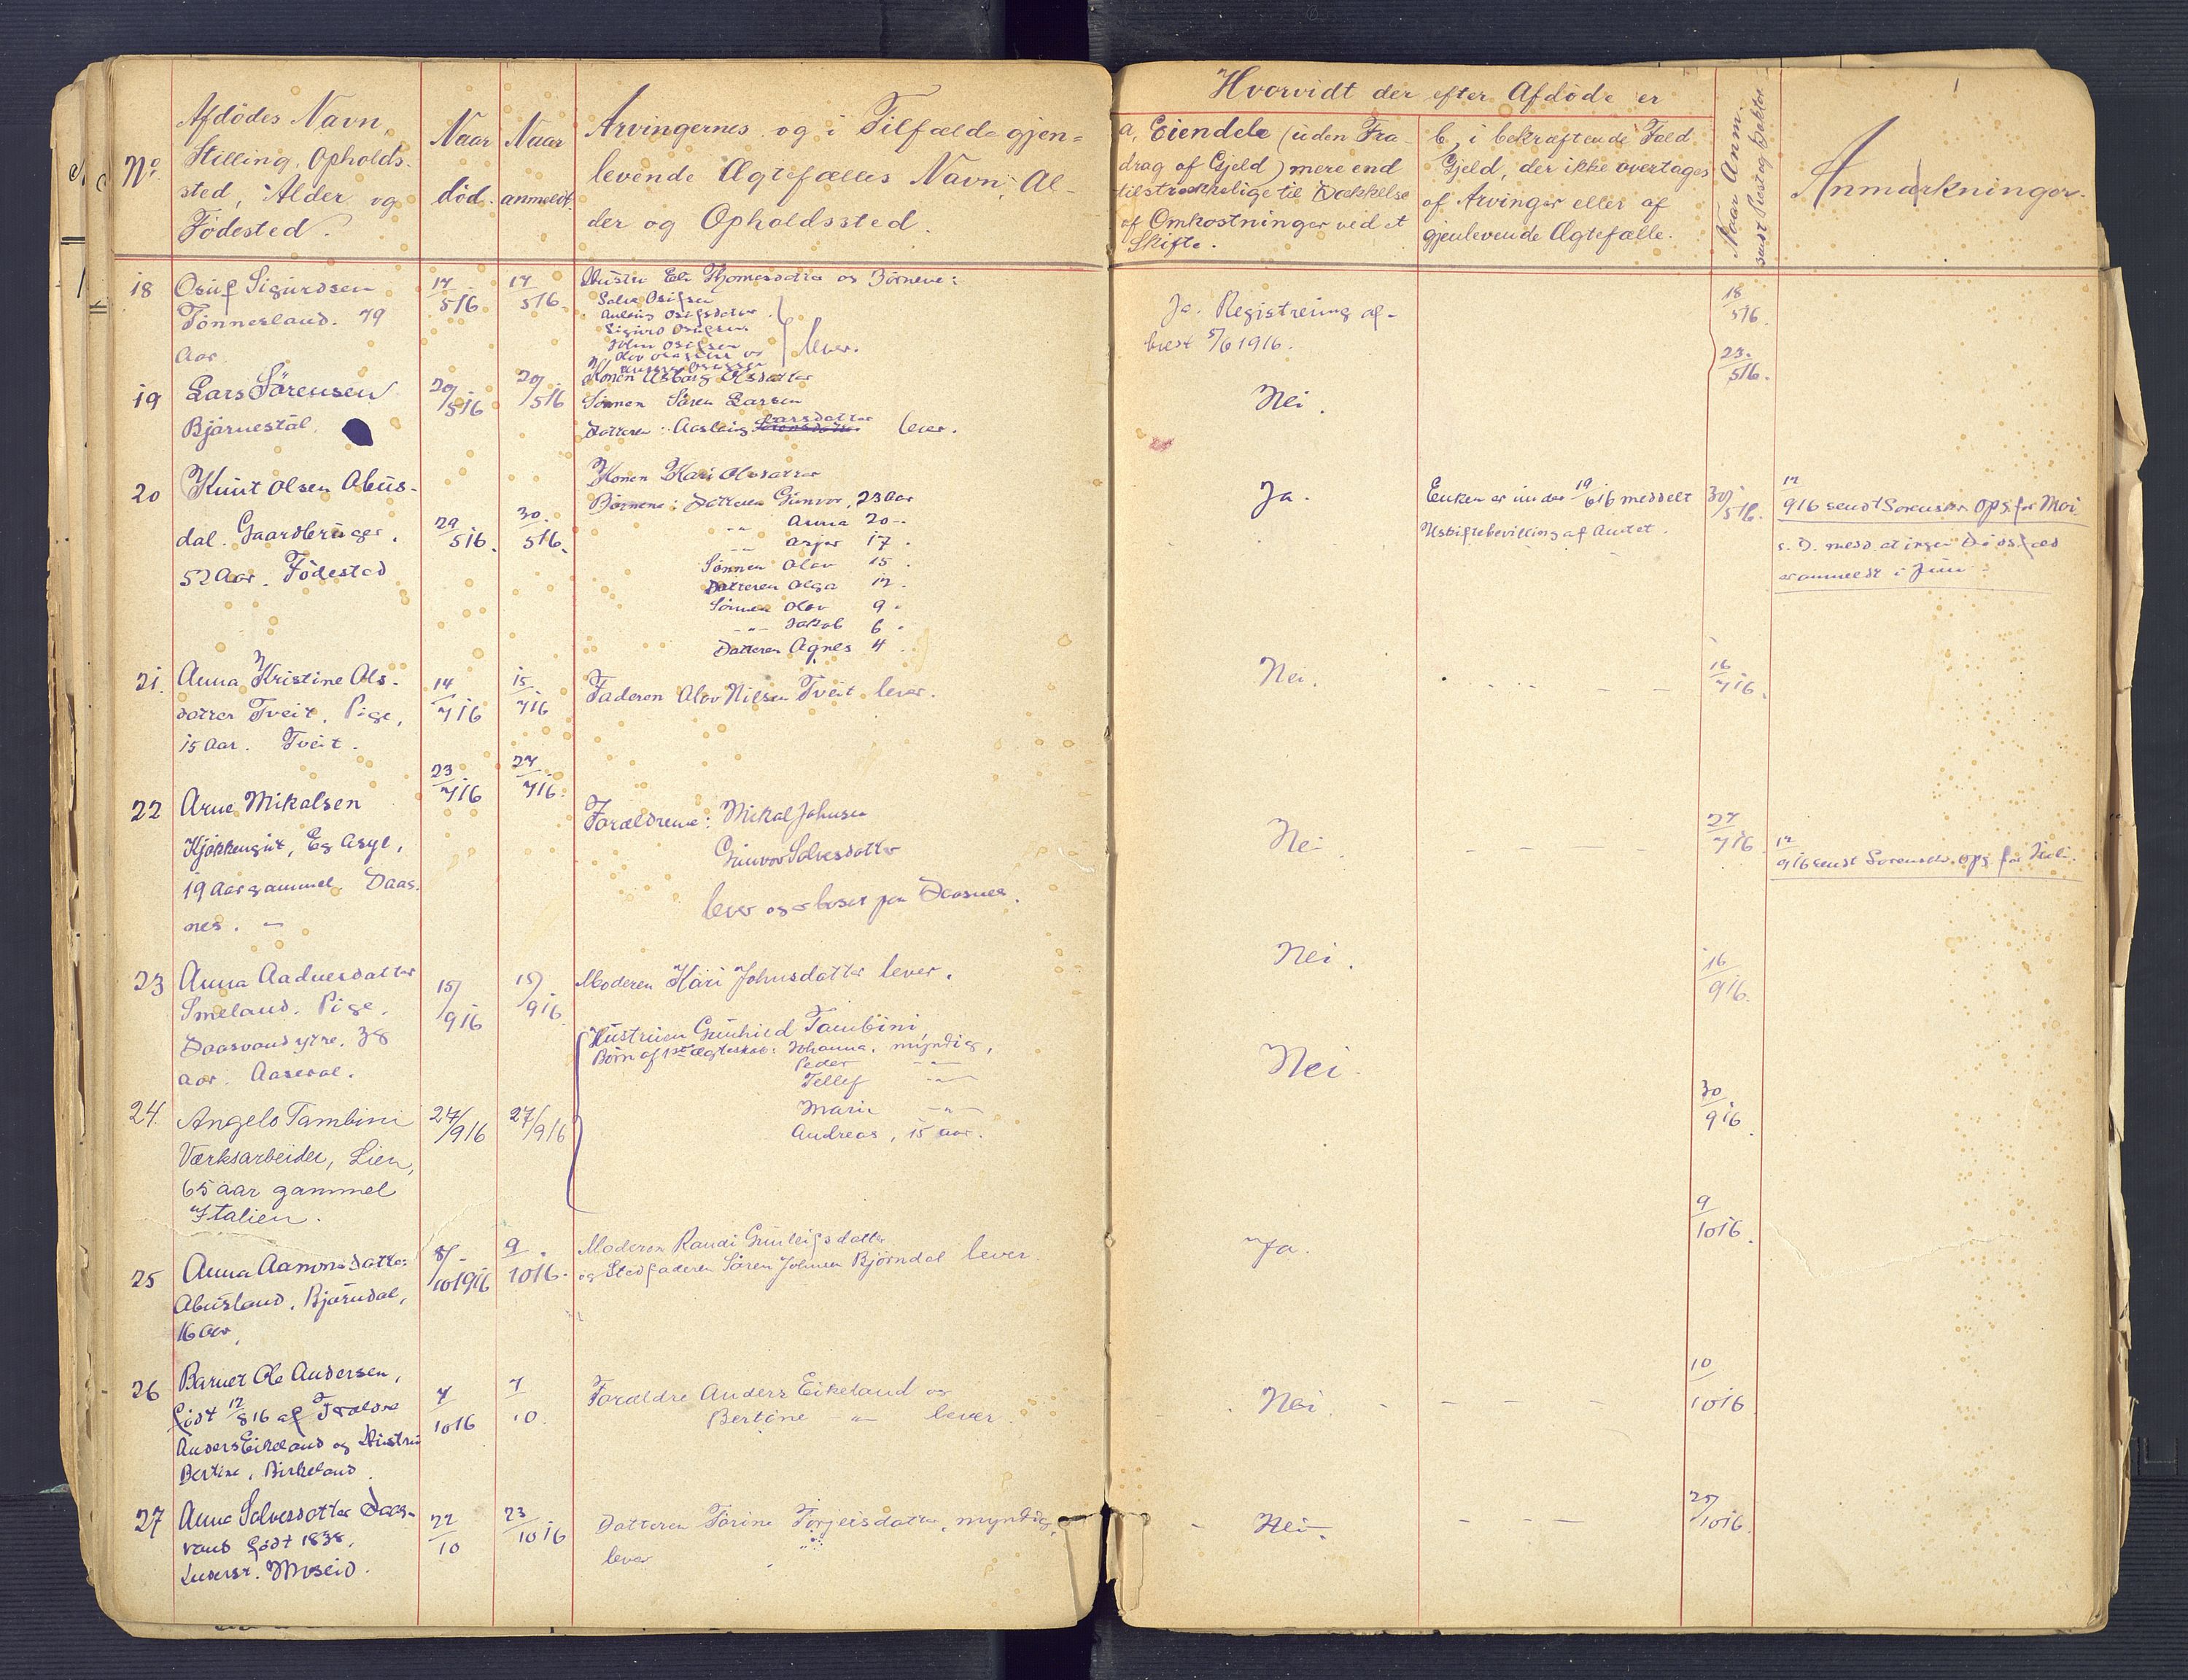 No.
Afdödes Navn,
Stilling, Opholds-
sted, Alder og
Födested.
Naar
död.
Naar
anmeldt.
Arvingernes og i Tilfælde gjen=
levende Ægtefælles Navn, Al-
der og Opholdssted.
Hvorvidt der efter Afdöde er
a, Eiendele (uden Fra-
drag af Gjeld) mere end
tilstrækkelige til Dækkelse
af Omkostninger ved et
Skifte.
b, i bekræftende Fald
Gjeld, der ikke overtages
af Arvinger eller af
gjenlevende Ægtefælle.
Naar Anm.
sendt
Anmærkninger.
18
Osuf Sigurdsen
Tönnesland. 79
Aar.
17/516
17/516.
Hustru Eli Thomesdatter og Börnene:
Salve Osufsen
Osufsdatter
Sigurd Osufsen
John Osufsen
Olav Osufsen og
lever.
Ja. Registrering af-
5/6 1916.
18/516.
23./516.
19
Lars Sörensen
Bjarnestöl.
20/516
20/516
Konen Asborg Olsdatter
Sönnen Sören Larsen
Datteren: Aaslaug Larsdatter lever.
Nei.
20
Knut Olsen Abus-
dal. Gaardbruger.
52 Aar. Födested
29/516.
30./516.
Konen Kari Olsdatter
Börnene: Datteren Gunvor, 23 Aar
-"- Anna 20 -
-"- Asjer 17 -
Sönnen Olav 15 -
Datteren Olga 12 -
Sönnen Olav 9 -
-"- Jakob 6 -
Datteren Agnes 4 -
Ja.
Enken er under 19/616 meddelt
Uskiftebevilling af Amtet.
30/516.
12/916 sendt Sorenskr. Opg. for Mai.
s. D. medd. at ingen Dödsfald
er anmeldt i Juni
21.
Anna Kristine Ols-
datter Tveit. Pige,
15 Aar. Tveit.
14/716
15/716
Faderen Olav Nilsen Tveit lever.
Nei.
16/716.
22
Arne Mikalsen
Kjökkengut, Eg Asyl,
19 Aar gammel. Daas-
nes.
23/716
27/716.
Forældrene: Mikal Johnsen
Gunvor Salvesdatter
lever og bosat paa Daasnes.
Nei
27/716
12/916 sendt Sorenskr. opg. for Juli.
23
Anna Aadnesdatter
Smeland. Pige.
Daasvand ytre. 38
aar. Aaseral.
15/916
15/916
Moderen Kari Johnsdatter lever.
Nei.
16/916.
24.
Angelo Tambini
Værksarbeider, Lien,
65 aar gammel
Italien.
27/916
27/916
Hustruen Gunhild Tambini,
Börn af 1ste Ægteskab: Johanna, myndig,
Peder -"-
Tellef -"-
Marie -"-
Andreas, 15 aar.
Nei.
30/916.
25
Anna Aamonsdatter
Abusland. Bjørndal,
16 Aar,
8/101916
9/1016.
Moderen Randi Gunleifsdatter
og Stedfaderen Sören Johnsen Bjørndal lever
Ja.
9/1016.
26
Barnet Ole Andersen,
födt 12/816 af Forældre
Anders Eikeland og Hustru
Bertine, Birkeland.
7/1016
7/10.
Forældre Anders Eikeland og
Bertine -"- lever.
Nei.
10/1016
27
Anne Salvesdatter Daas-
vand födt 1838.
Moseid.
22/10
23/1016
Datteren Torine Torjeisdatter, myndig,
lever
Nei.
25/1016.